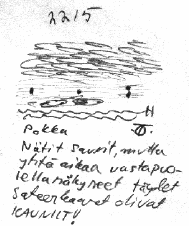 2215
H
Pokka
Nätit savut, mutta
yhtä aikaa vastapuo-
lella näkyneet täydet
sateenkaaret olivat
KAUNIIT!